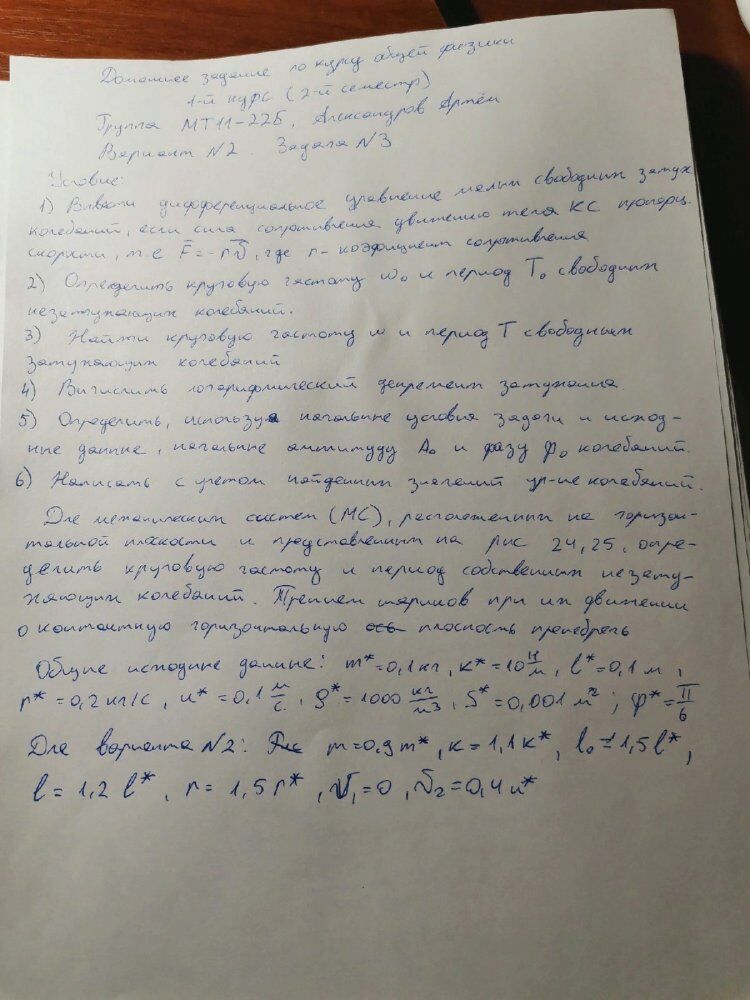 Домашнее задание по курсу общей физики
1-й курс (2-й семестр)
Группа МТ11-22Б, Александров Артём
Вариант N2. Задача N3
Условие:
1) Вывести дифференциальное уравнение малых свободных затух.
колебаний, если сила сопротивления движению тела КС пропорц.
скорости, т.е F̅ = -rV̅, где r - коэфициент сопротивления
2) Определить круговую частоту ω₀ и период T₀ свободных
незатухающих колебаний.
3) Найти круговую частоту ω и период T свободных
затухающих колебаний
4) Вычислить логарифмический декремент затухания.
5) Определить, используя начальные условия задачи и исход-
ные данные, начальные амплитуду A₀ и фазу φ₀ колебаний.
6) Написать с учетом найденных значений ур-ие колебаний.
Для механических систем (МС), расположенных на горизон-
тальной плоскости и представленных на рис 24, 25, опре-
делить круговую частоту и период собственных незату-
хающих колебаний. Трением шариков при их движении
о контактную горизонтальную плоскость пренебречь
Общие исходные данные: m*=0,1 кг, к*=10 Н/м, l*=0,1 м,
r*=0,2 кг/с, u*=0,1 м/с, ρ*=1000 кг/м3, S*=0,001 м²; φ*=π/6
Для варианта N2: m=0,9m*, к=1,1к*, l₀=1,5l*,
l=1,2 l*, r=1,5r*, V₁=0, V₂=0,4u*